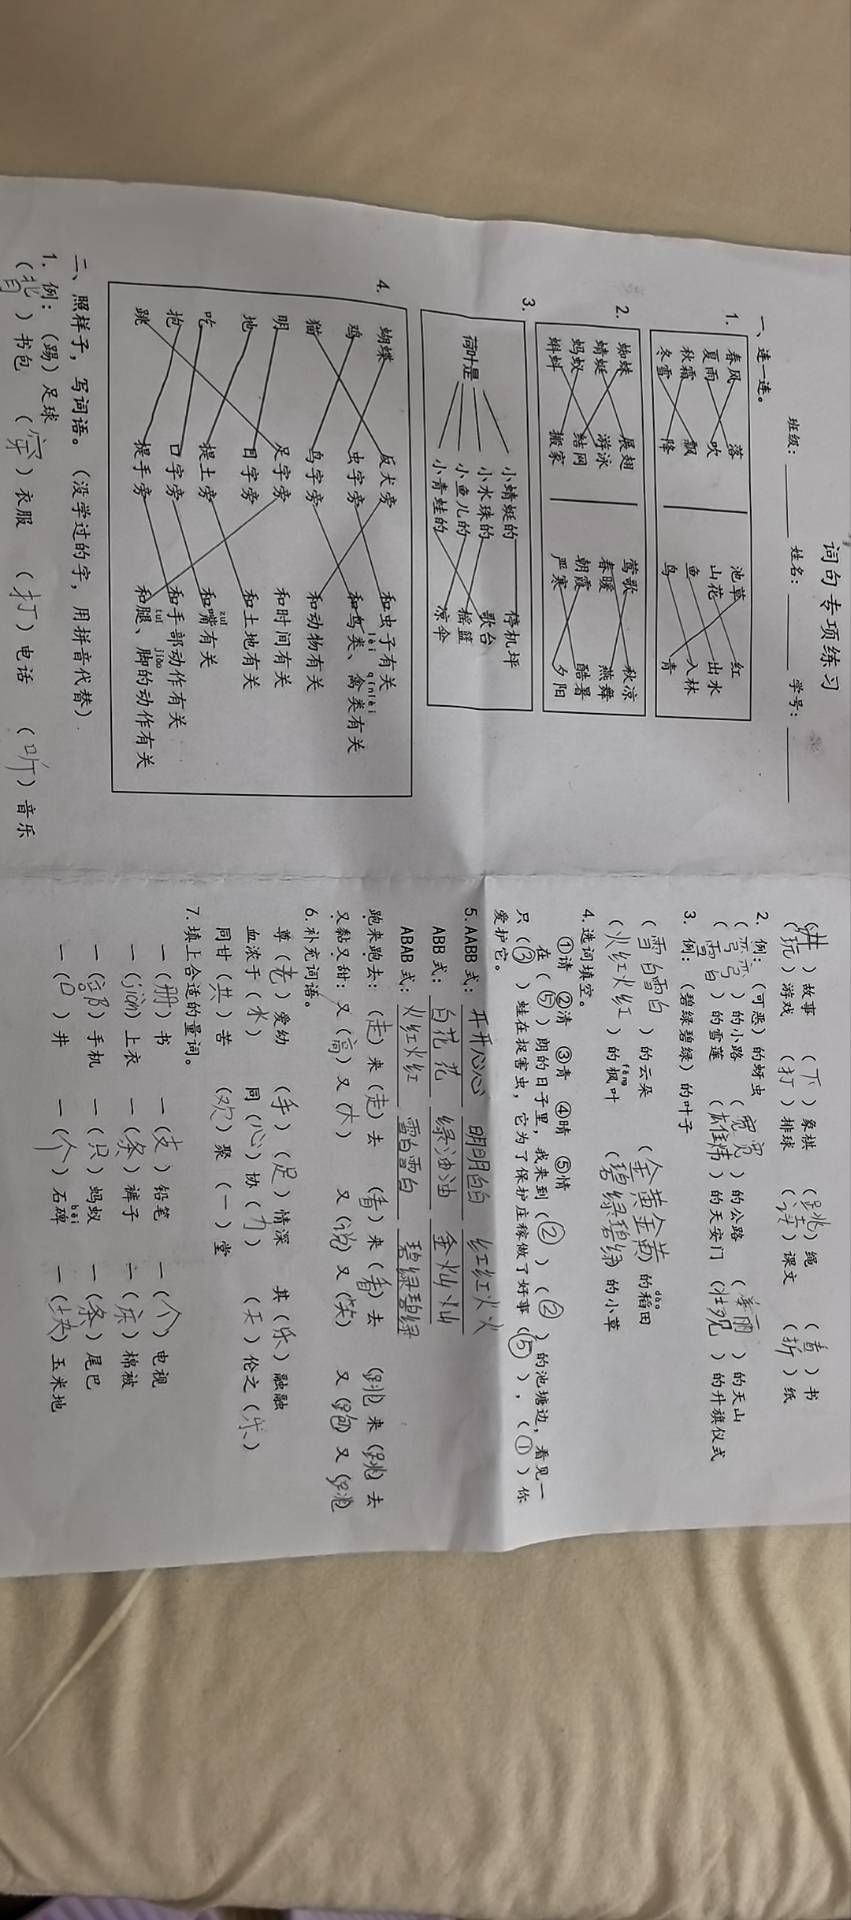 词句专项练习
班级: 姓名: 学号:
一、连一连。
1.
春风 落 池草 红
夏雨 吹 山花 出水
秋霜 飘 鱼 入林
冬雪 降 鸟 青
2.
蜘蛛 展翅 莺歌 秋凉
蜻蜓 游泳 春暖 燕舞
蚂蚁 结网 朝霞 酷暑
蝌蚪 搬家 严寒 夕阳
3.
荷叶是
小蜻蜓的 停机坪
小水珠的 歌台
小鱼儿的 摇篮
小青蛙的 凉伞
4.
蝴蝶 反犬旁 和虫子有关
鸡 虫字旁 和鸟类、禽类有关
猫 鸟字旁 和动物有关
明 足字旁 和时间有关
地 日字旁 和土地有关
吃 提土旁 和嘴有关
抱 口字旁 和手部动作有关
跳 提手旁 和腿、脚的动作有关
二、照样子，写词语。（没学过的字，用拼音代替）.
1. 例：（踢）足球
（背）书包 （穿）衣服 （打）电话 （听）音乐
（讲）故事 （下）象棋 （跳）绳 （看）书
（玩）游戏 （打）排球 （读）课文 （折）纸
2. 例：（可恶）的蚜虫
（弯弯）的小路 （宽宽）的公路 （美丽）的天山
（雪白）的雪莲 （ ）的天安门 （壮观）的升旗仪式
3. 例：（碧绿碧绿）的叶子
（雪白雪白）的云朵 （金黄金黄）的稻田
（火红火红）的枫叶 （碧绿碧绿）的小草
4. 选词填空。
①请 ②清 ③青 ④晴 ⑤情
在（⑤）朗的日子里，我来到（②）（②）的池塘边，看见一
只（③）蛙在捉害虫，它为了保护庄稼做了好事（⑤），（①）你
爱护它。
5. AABB 式： 开开心心 明明白白 红红火火
ABB 式： 白花花 绿油油 金灿灿
ABAB 式： 火红火红 雪白雪白 碧绿碧绿
跑来跑去：（走）来（走）去 （看）来（看）去 （跳）来（跳）去
又黏又甜：又（高）又（大） 又（说）又（笑） 又（跑）又（跳）
6. 补充词语。
尊（老）爱幼 （手）（足）情深 其（乐）融融
血浓于（水） 同（心）协（力） （天）伦之（乐）
同甘（共）苦 （欢）聚（一）堂
7. 填上合适的量词。
一（册）书 一（支）铅笔 一（个）电视
一（jiàn）上衣 一（条）裤子 一（床）棉被
一（部）手机 一（只）蚂蚁 一（条）尾巴
一（口）井 一（个）石碑 一（块）玉米地